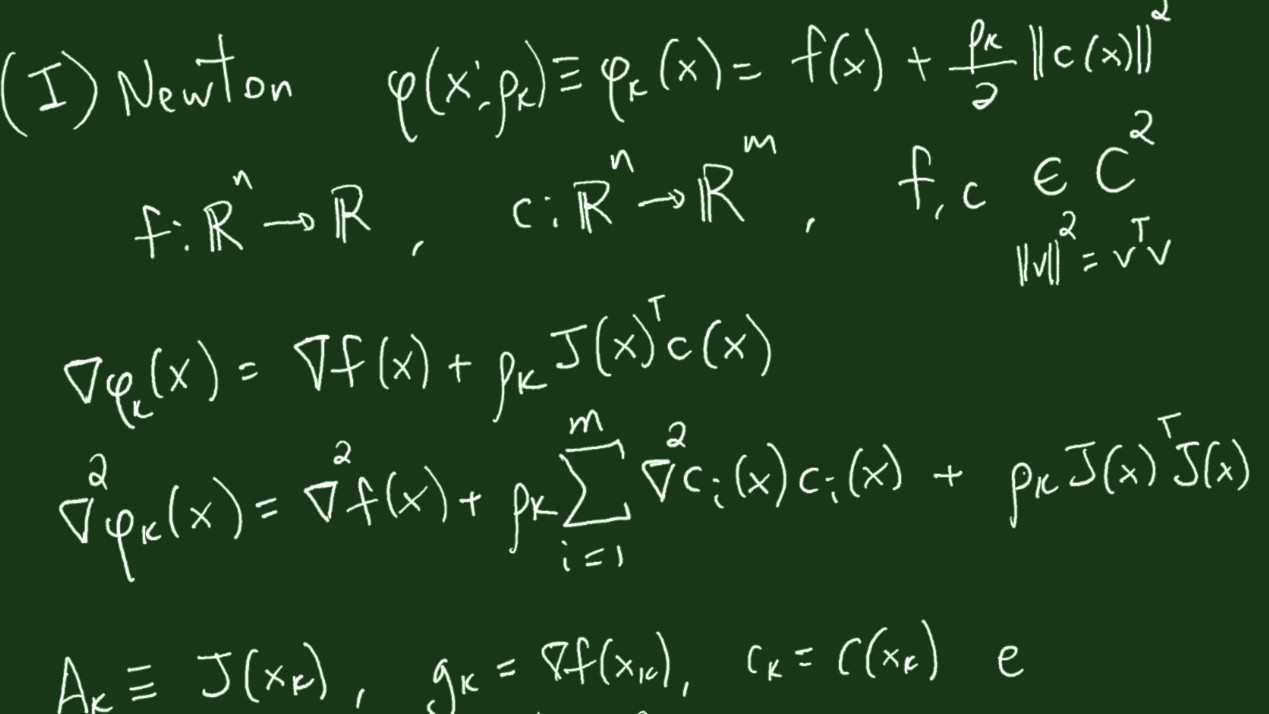 (I) Newton φ(x;ρₖ) ≡ φₖ(x) = f(x) + ρₖ/2 ‖c(x)‖²
f: ℝⁿ → ℝ, c: ℝⁿ → ℝᵐ, f, c ∈ C²
‖v‖² = vᵀv
∇φₖ(x) = ∇f(x) + ρₖ J(x)ᵀc(x)
∇²φₖ(x) = ∇²f(x) + ρₖ ∑ᵢ₌₁ᵐ ∇²cᵢ(x)cᵢ(x) + ρₖ J(x)ᵀJ(x)
Aₖ ≡ J(xₖ), gₖ = ∇f(xₖ), cₖ = c(xₖ) e